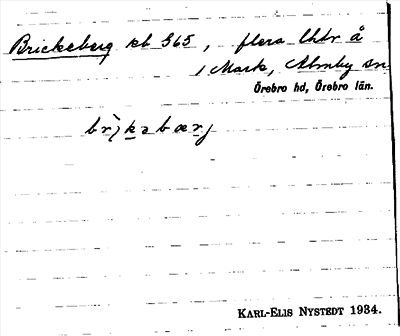 Brickeberg kb 365, flera lhtr å
1 Mark, Almby sn
Örebro hd, Örebro län.
br`ı̨kəbærj
KARL-ELIS NYSTEDT 1934.